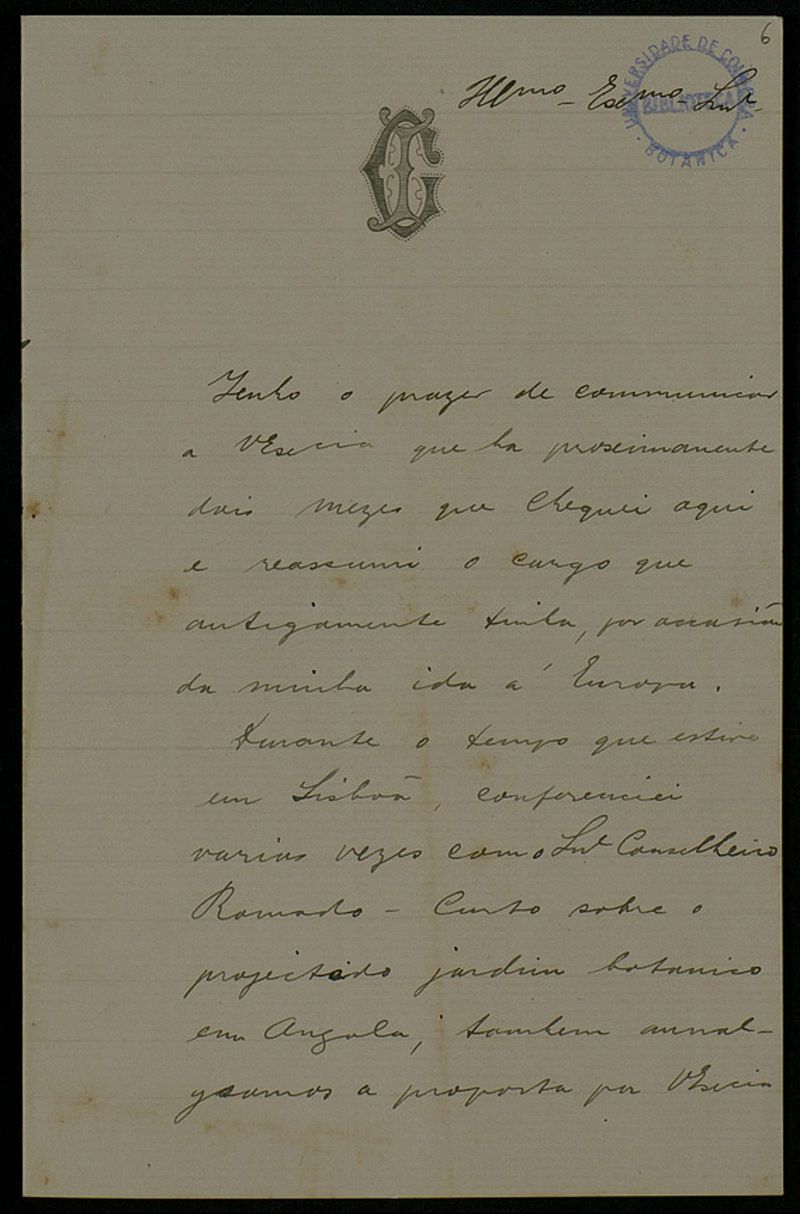 6
UNIVERSIDADE DE COIMBRA
BIBLIOTECA
BOTÂNICA
Illmo - Exmo - Snr
Tenho o prazer de communicar
a VExcia que ha proximamente
dois mezes que cheguei aqui
e reassumi o cargo que
antigamente tinha, por occasião
da minha ida á Europa.
Durante o tempo que estive
em Lisboã, conferenciei
varias vezes com o Snr Conselheiro
Ramado - Curto sobre o
projectado jardim botanico
em Angola; tambem annal-
ysamos a proposta por VExcia